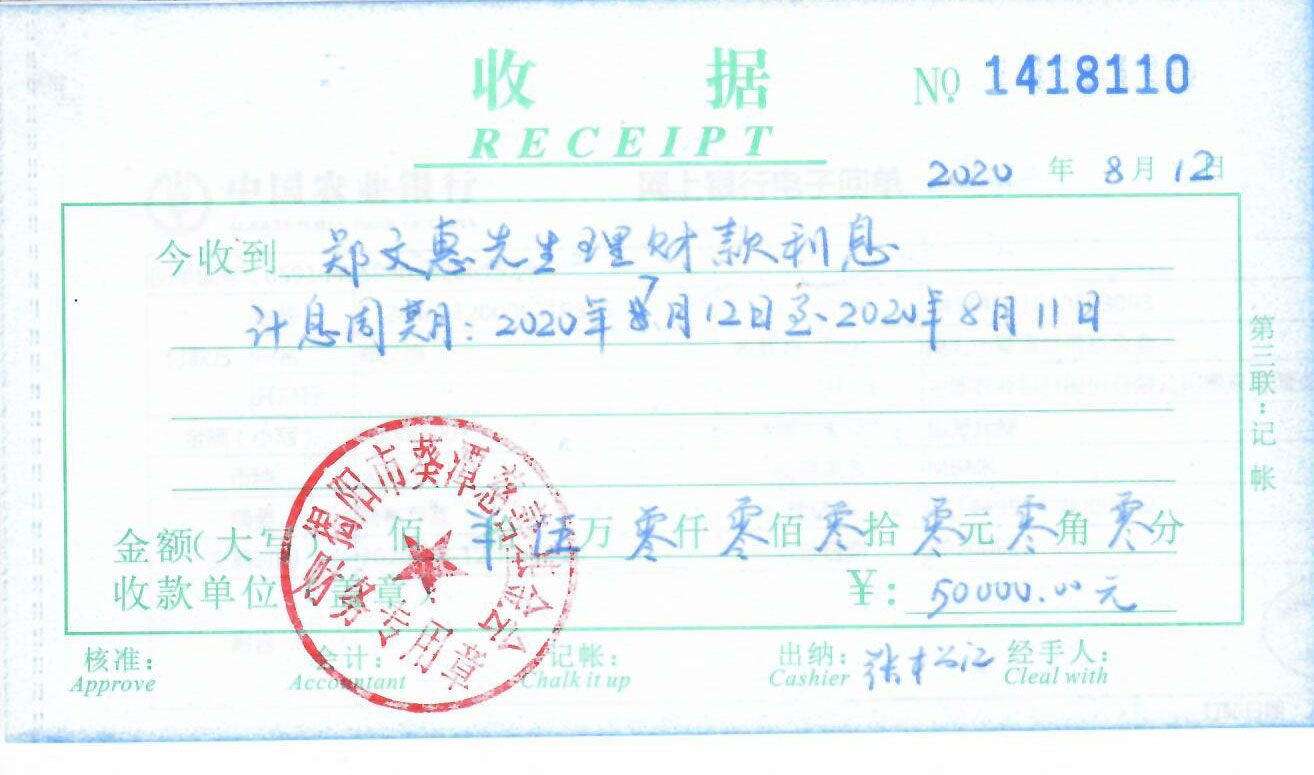 收据
№ 1418110
RECEIPT
2020 年 8 月 12 日
今收到 郑文惠先生理财款利息
计息周期：2020年7月12日至2020年8月11日
金额(大写) 佰 拾 伍 万 零 仟 零 佰 零 拾 零 元 零 角 零 分
收款单位(盖章)
¥: 50000.00元
核准： 会计： 记帐： 出纳： 经手人：
Approve Accountant Chalk it up Cashier Cleal with
第三联：记帐
揭阳市葵潭慈善基金会
财务专用章
中国农业银行
网上银行电子回单